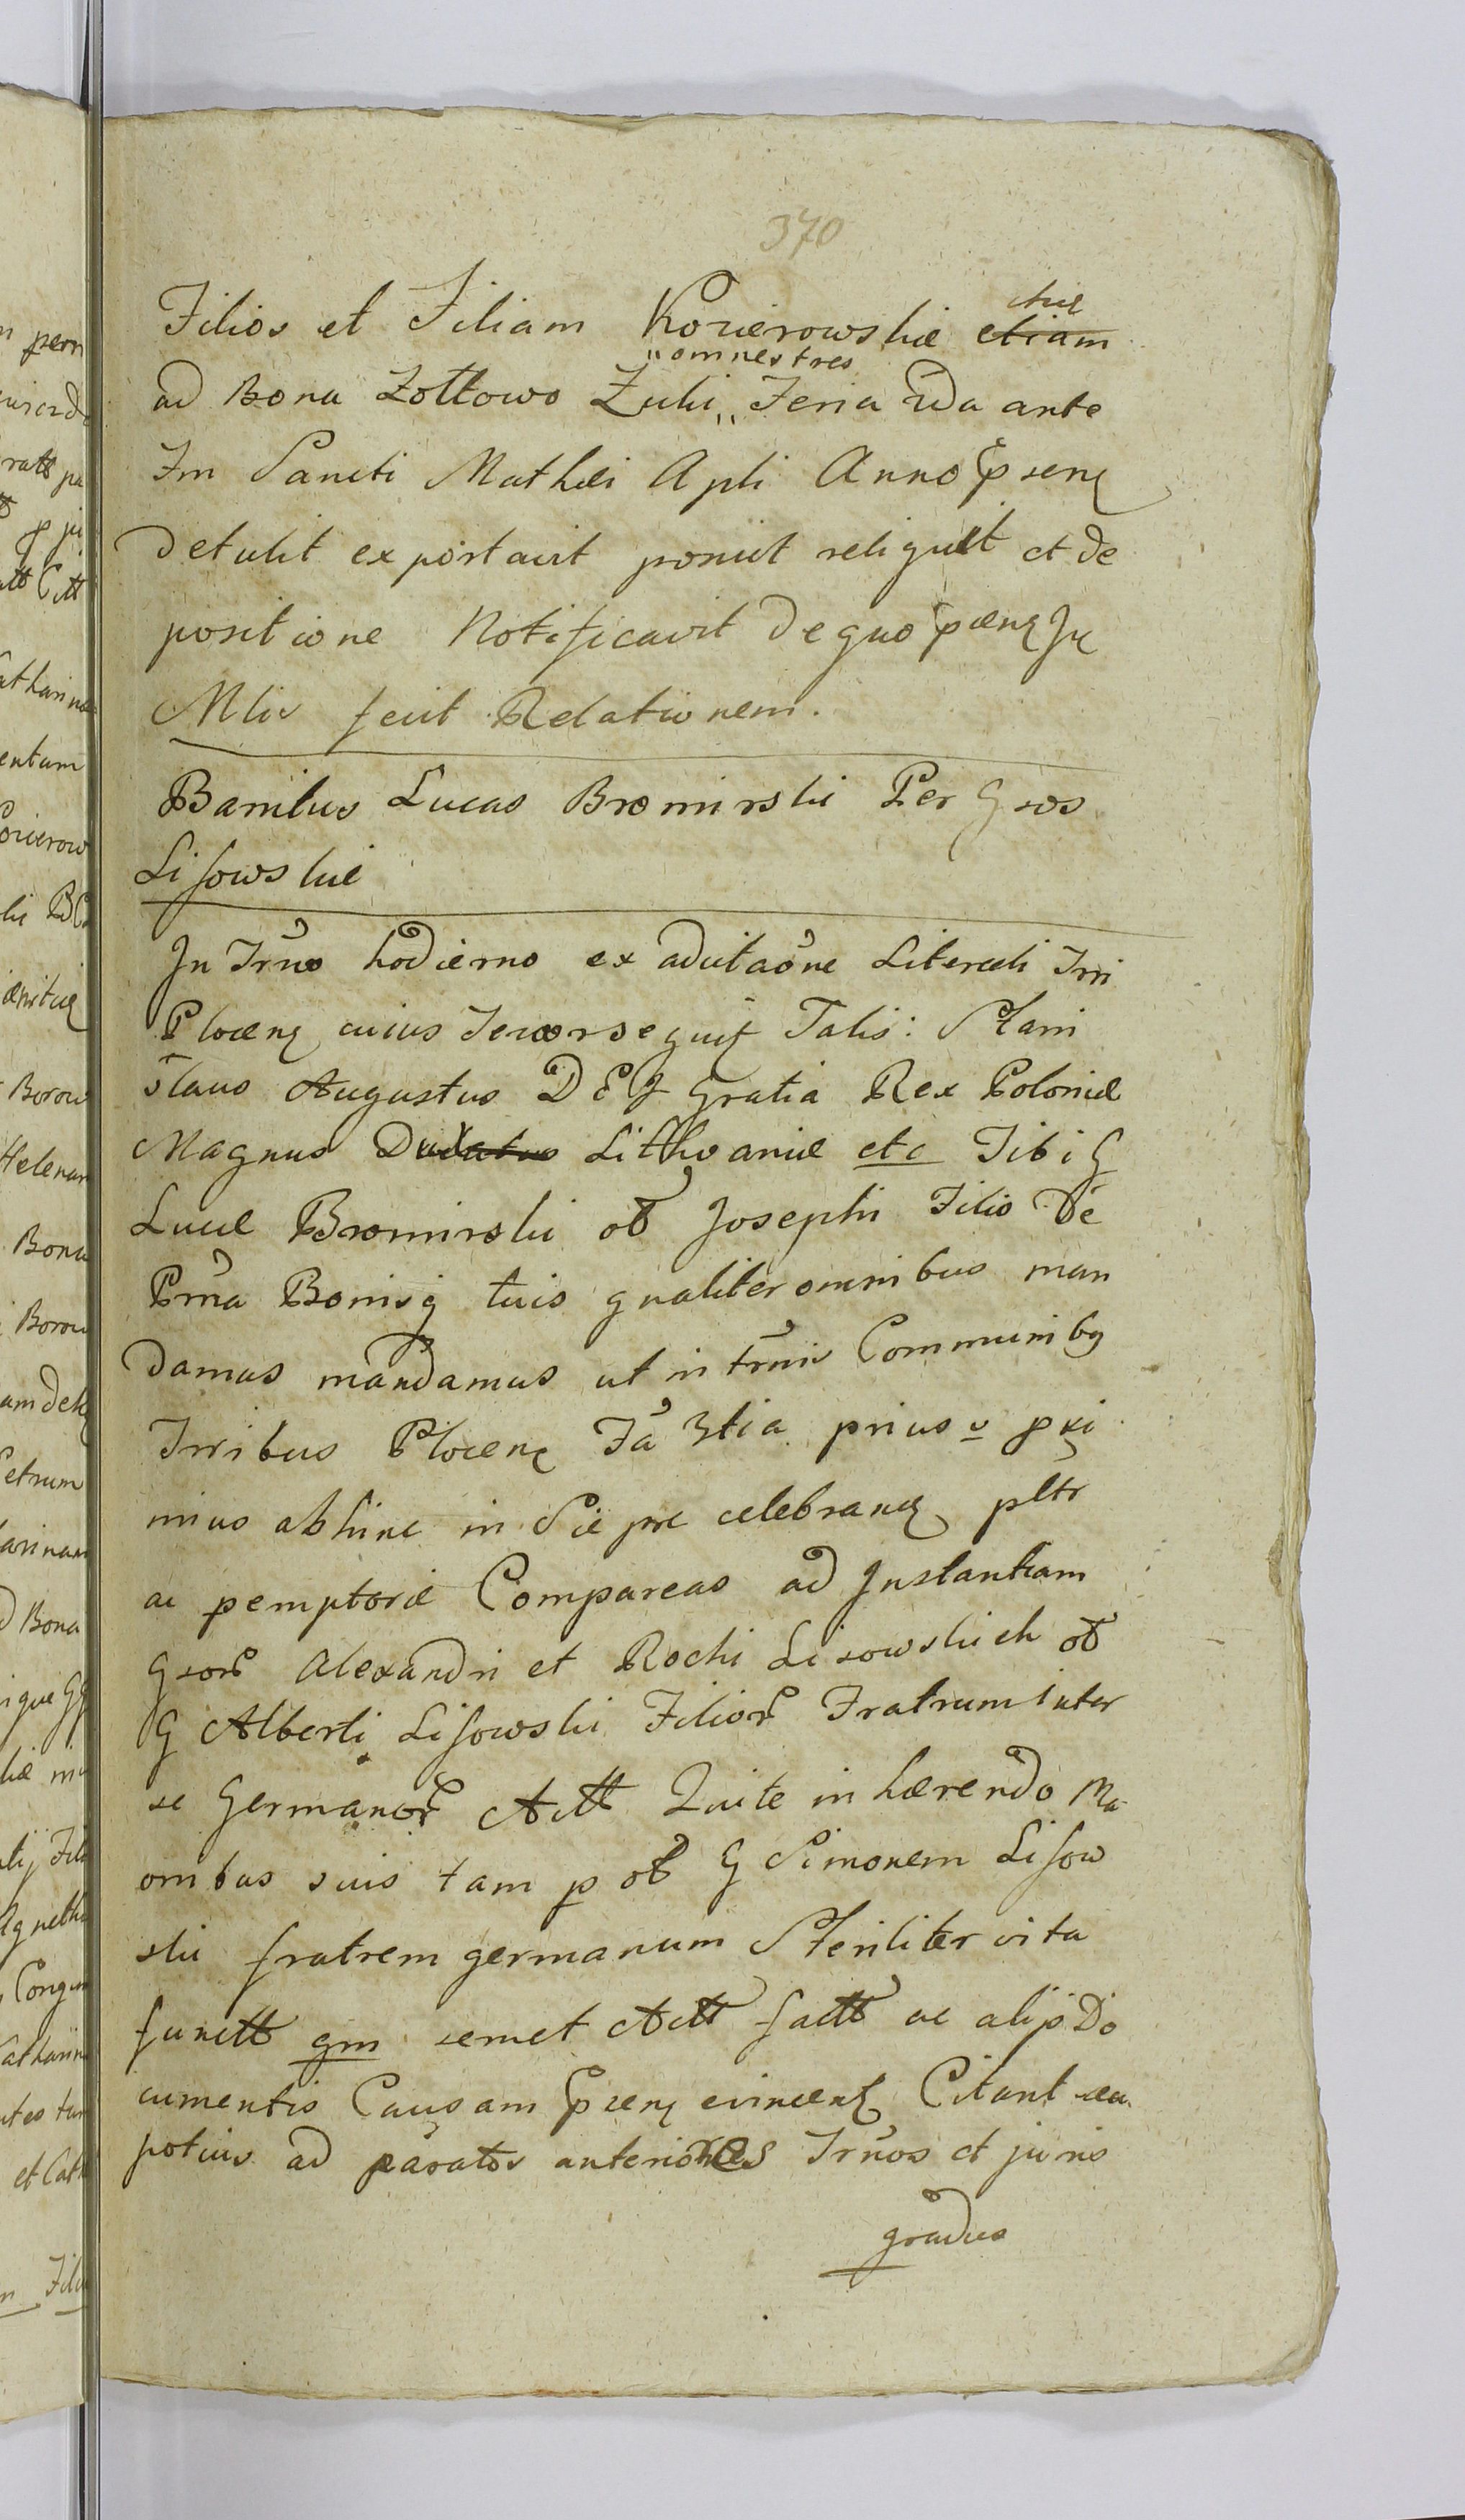 370
Filios et Filiam Kozierowskie etiam
ad Bona Zottowo Żuki „omnes tres„ Feria 2da ante
Fm Sancti Mathæi Apli Anno pren
detulit exportavit poniit reliquit et de
positione Notificavit de quo præn Ju
Mlis fecit Relationem.
Banitus Lucas Bromirski Per Gsos
Lisowskie
In Trno hodierno ex adcitaone Literali Trri
Plocen cuius Tenor sequit Talis: Stani
slaus Augustus DEI Gratia Rex Poloniæ
Magnus Dux Lithvaniæ etc Tibi G
Lucæ Bromirski oł Josephi Filio De
Prna Bonisq tuis gnaliter omnibus man
damus mandamus ut in trnis Communibq
Trribus Plocen Fa 3tia prius v pxi
mius abhinc in Sie pre celebran pltr
ac pemptorie Compareas ad Instantiam
Gsor Alexandri et Rochi Lisowskich oł
G Alberti Lisowski Filior Fratrum inter
se Germanor Actt Quite inhærendo Ma-
omibus suis tam p oł G Simonem Lisow
ski fratrem germanum Steriliter vita
functt qm semet Actt factt ac alijs Do
cumentis Causam pren evincent Citant seu
potius ad paratos anteriores Trnos et juris
gradus